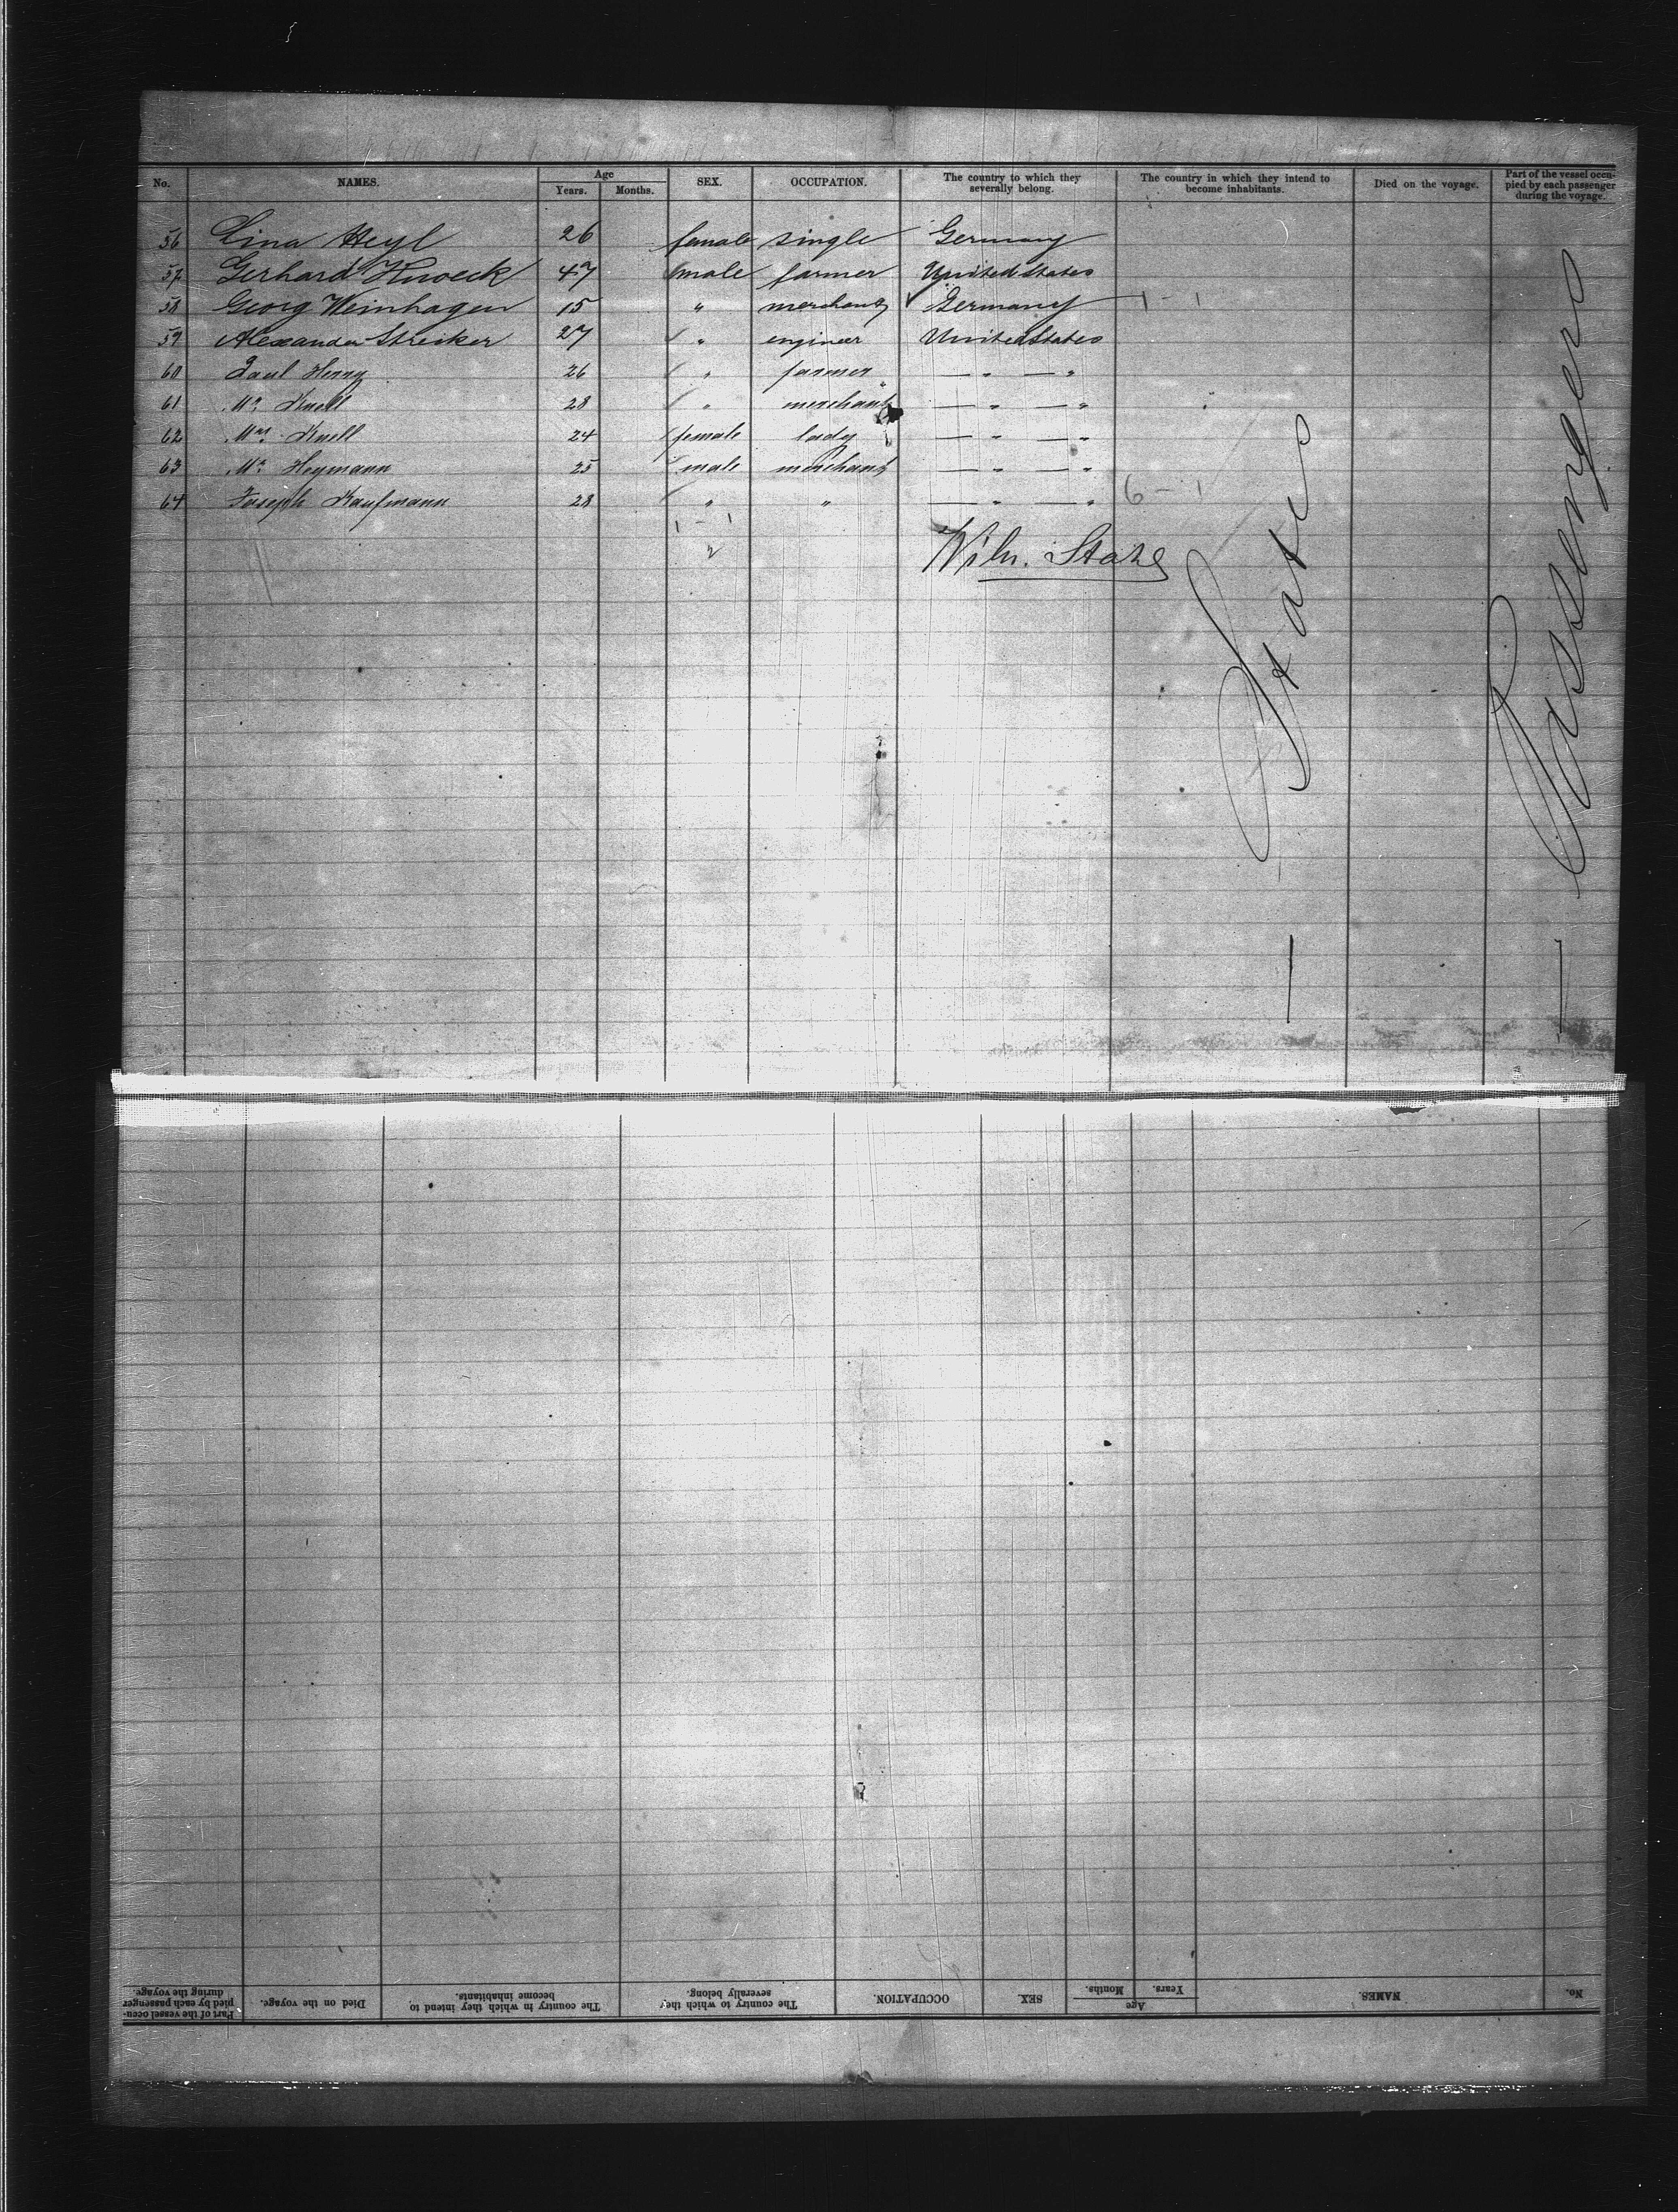 No. NAMES. Age Years. Months. SEX. OCCUPATION. The country to which they severally belong. The country in which they intend to become inhabitants. Died on the voyage. Part of the vessel occupied by each passenger during the voyage.
56 Lina Heyl 26 female single Germany
57 Gerhard Knoeck 47 male farmer United States
58 Georg Weinhagen 15 " merchant Germany 1-1
59 Alexander Streiker 27 " engineer United States
60 Paul Henry 26 " farmer — " — "
61 Mr. Knell 28 " merchant — " — "
62 Mrs. Knell 24 female lady — " — "
63 Mr. Heymann 25 male merchant — " — "
64 Joseph Kaufmann 28 " " — " — " 6-1
1-1
2
States
Passengers
No. NAMES. Age Years. Months. SEX. OCCUPATION. The country to which they severally belong. The country in which they intend to become inhabitants. Died on the voyage. Part of the vessel occupied by each passenger during the voyage.